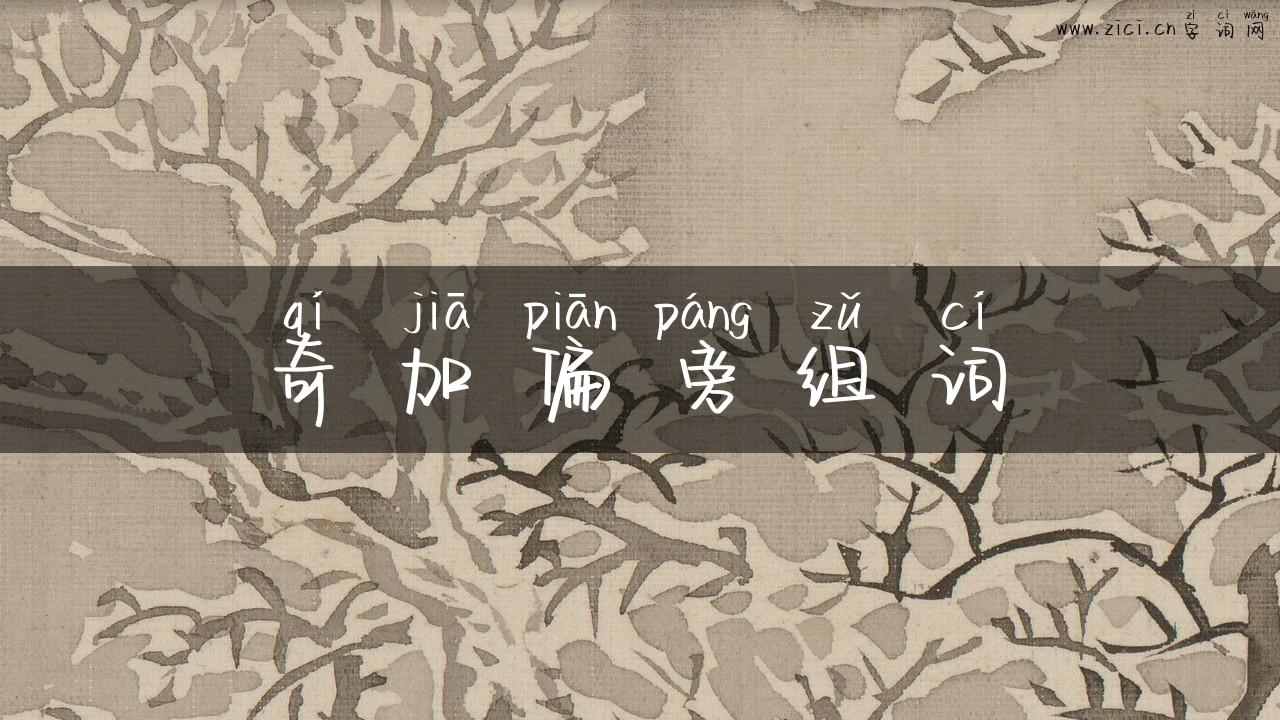 zì cí wǎng
www.zici.cn字词网
qí jiā piān páng zǔ cí
奇加偏旁组词